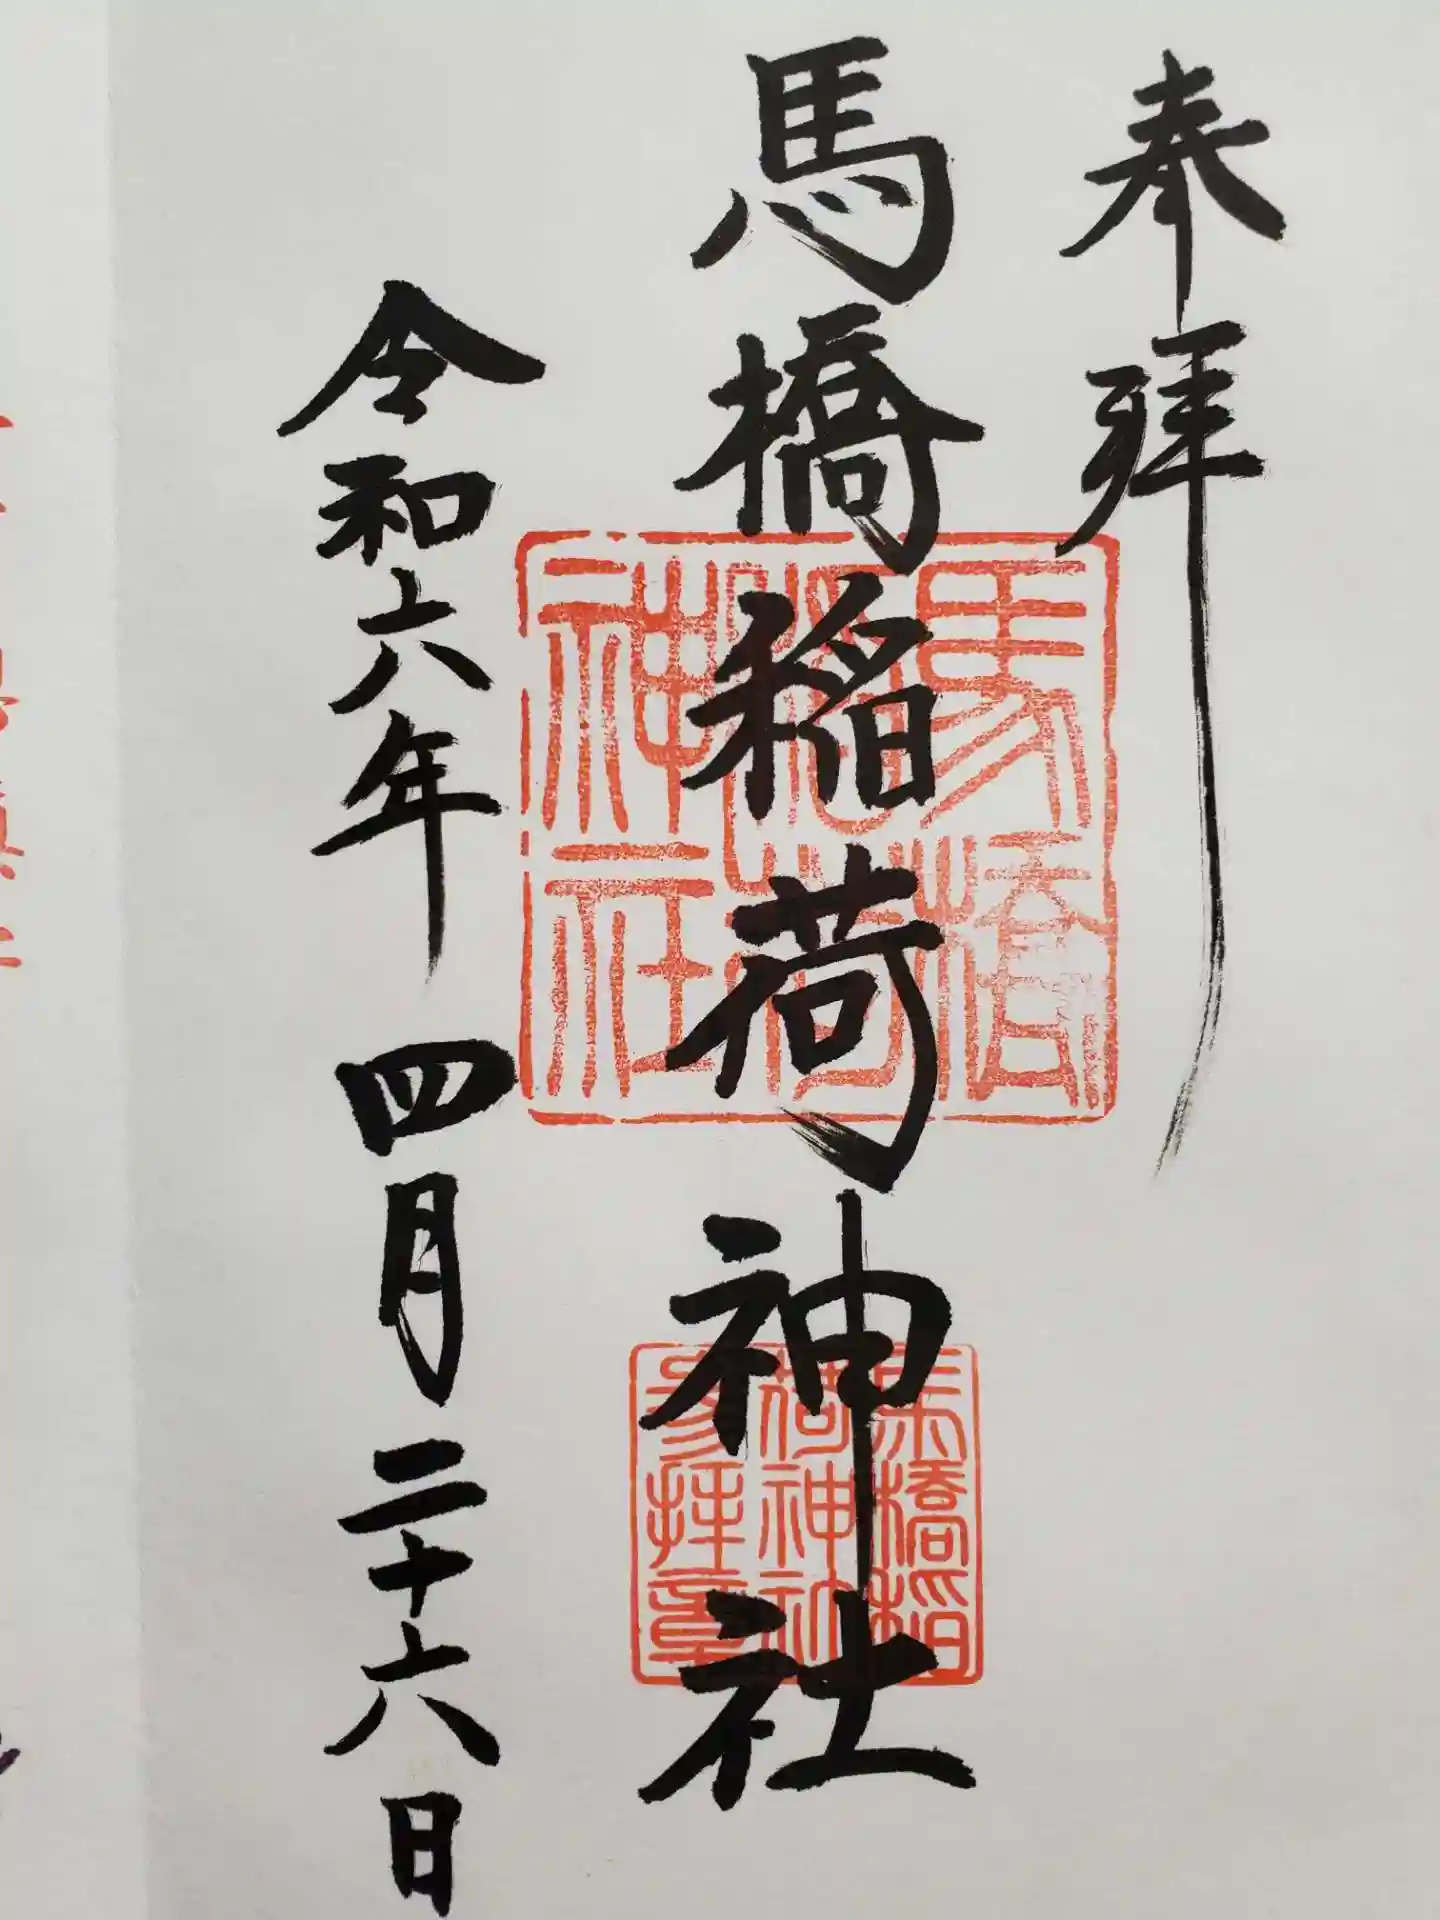 奉拝
馬橋稲荷神社
馬橋
稲荷
神社
馬橋稲
荷神社
参拝章
令和六年 四月二十六日